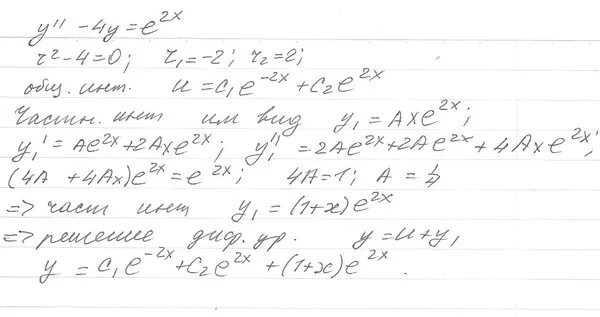 y'' - 4y = e^{2x}
r² - 4 = 0; r₁ = -2; r₂ = 2;
общ. инт. u = c₁e^{-2x} + c₂e^{2x}
Частн. инт им вид y₁ = Axe^{2x};
y₁' = Ae^{2x} + 2Axe^{2x}; y₁'' = 2Ae^{2x} + 2Ae^{2x} + 4Axe^{2x};
(4A + 4Ax)e^{2x} = e^{2x}; 4A = 1; A = 1/4
=> част инт y₁ = (1+x)e^{2x}
=> решение диф. ур. y = u + y₁
y = c₁e^{-2x} + c₂e^{2x} + (1+x)e^{2x}.